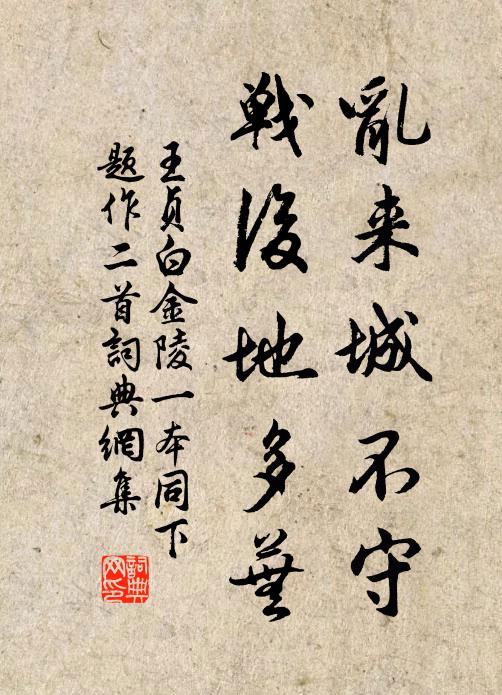 亂来城不守
戰後地多蕪
王貞白金陵一本同下
題作二首詞典網集
詞典網印